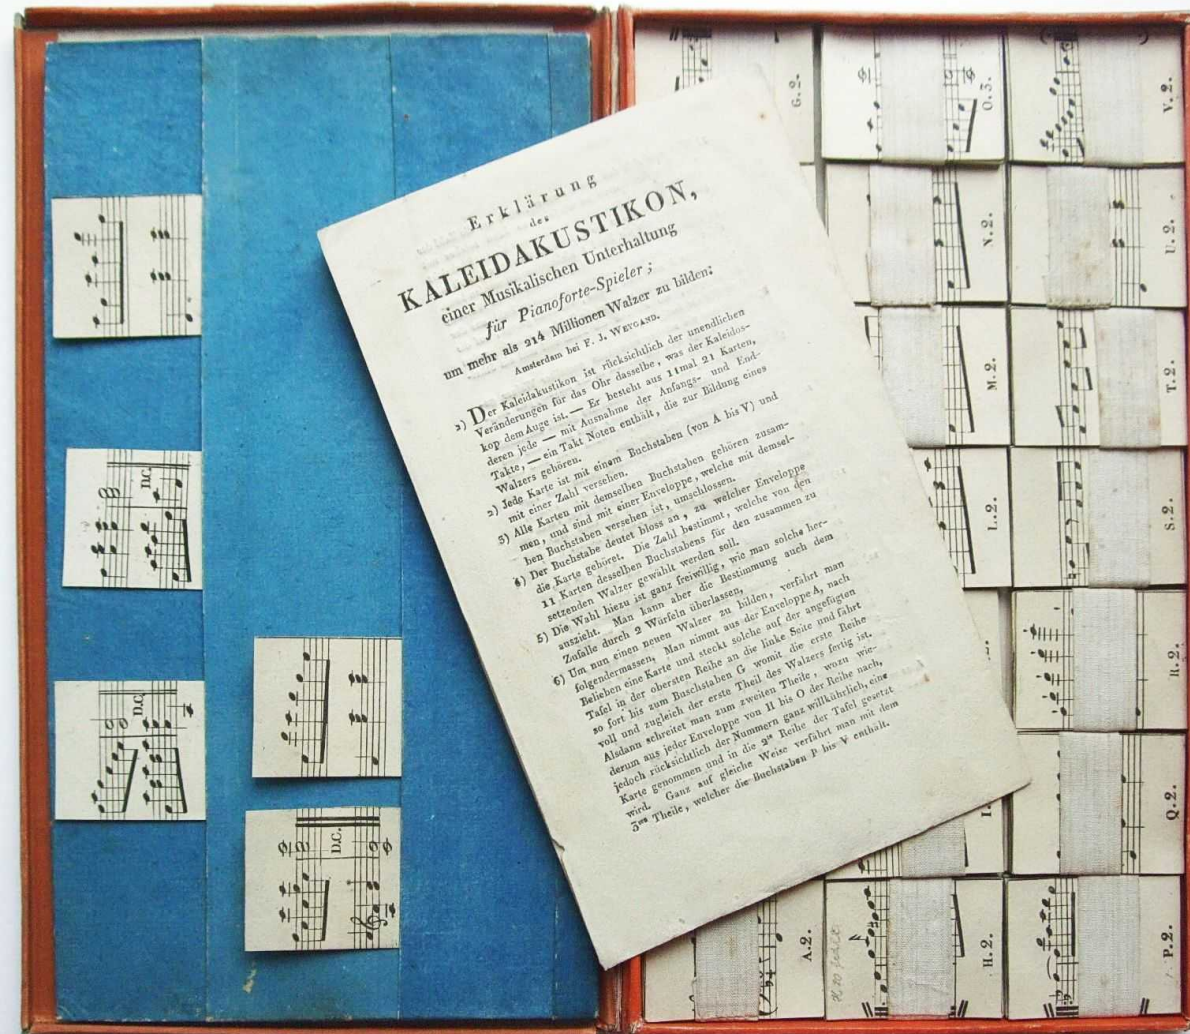 Erklärung
des
KALEIDAKUSTIKON,
einer Musikalischen Unterhaltung
für Pianoforte-Spieler;
um mehr als 214 Millionen Walzer zu bilden:
Amsterdam bei F. J. WEYGAND.
1) Der Kaleidakustikon ist rücksichtlich der unendlichen
Veränderungen für das Ohr dasselbe, was der Kaleidos-
kop dem Auge ist. — Er besteht aus 11mal 21 Karten,
deren jede — mit Ausnahme der Anfangs- und End-
Takte, — ein Takt Noten enthält, die zur Bildung eines
Walzers gehören.
2) Jede Karte ist mit einem Buchstaben (von A bis V) und
mit einer Zahl versehen.
3) Alle Karten mit demselben Buchstaben gehören zusam-
men, und sind mit einer Enveloppe, welche mit demsel-
ben Buchstaben versehen ist, umschlossen.
4) Der Buchstabe deutet bloss an, zu welcher Enveloppe
die Karte gehöret. Die Zahl bestimmt, welche von den
11 Karten desselben Buchstabens für den zusammen zu
setzenden Walzer gewählt werden soll.
5) Die Wahl hiezu ist ganz freiwillig, wie man solche her-
auszieht. Man kann aber die Bestimmung auch dem
Zufalle durch 2 Würfeln überlassen.
6) Um nun einen neuen Walzer zu bilden, verfährt man
folgendermassen, Man nimmt aus der Enveloppe A, nach
Belieben eine Karte und steckt solche auf der angefügten
Tafel in der obersten Reihe an die linke Seite und fährt
so fort bis zum Buschstaben G womit die erste Reihe
voll und zugleich der erste Theil des Walzers fertig ist.
Alsdann schreitet man zum zweiten Theile, wozu wie-
derum aus jeder Enveloppe von H bis O der Reihe nach,
jedoch rücksichtlich der Nummern ganz willkührlich, eine
Karte genommen und in die 2te Reihe der Tafel gesetzt
wird. Ganz auf gleiche Weise verfährt man mit dem
3ten Theile, welcher die Buchstaben P bis V enthält.
D.C.
D.C.
D.C.
G.2.
O.3.
V.2.
N.2.
U.2.
M.2.
T.2.
L.2.
S.2.
R.2.
Q.2.
A.2.
H.2.
P.2.